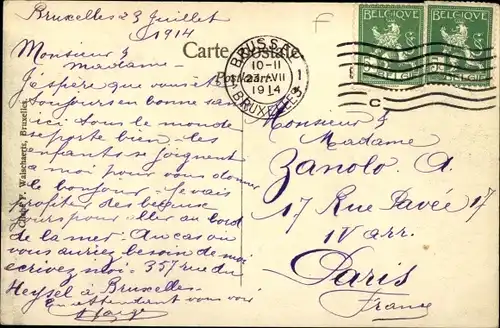 Bruxelles 23 Juillet
1914
Monsieur &
madame
J'espère que vous êtes
toujours en bonne san
ici tous le monde
se porte bien. les
enfants se joignent
a moi pour vous donner
le bonjour. Je vais
profiter des
jours pour aller au bord
de la mer. Au cas ou
vous auriez besoin de moi
écrivez moi. 357 rue du
Heysel à Bruxelles.
En attendant vous voir
Carte Postale
Postkaart
BRUSSEL
10-11
23 VII
1914
BRUXELLES
BELGIQUE
BELGIË
BELGIQUE
BELGIË
F
C
Monsieur &
Madame
Zanolo. A
17 Rue Pavée 17
IV arr.
Paris
France
F. Walschaerts, Bruxelles